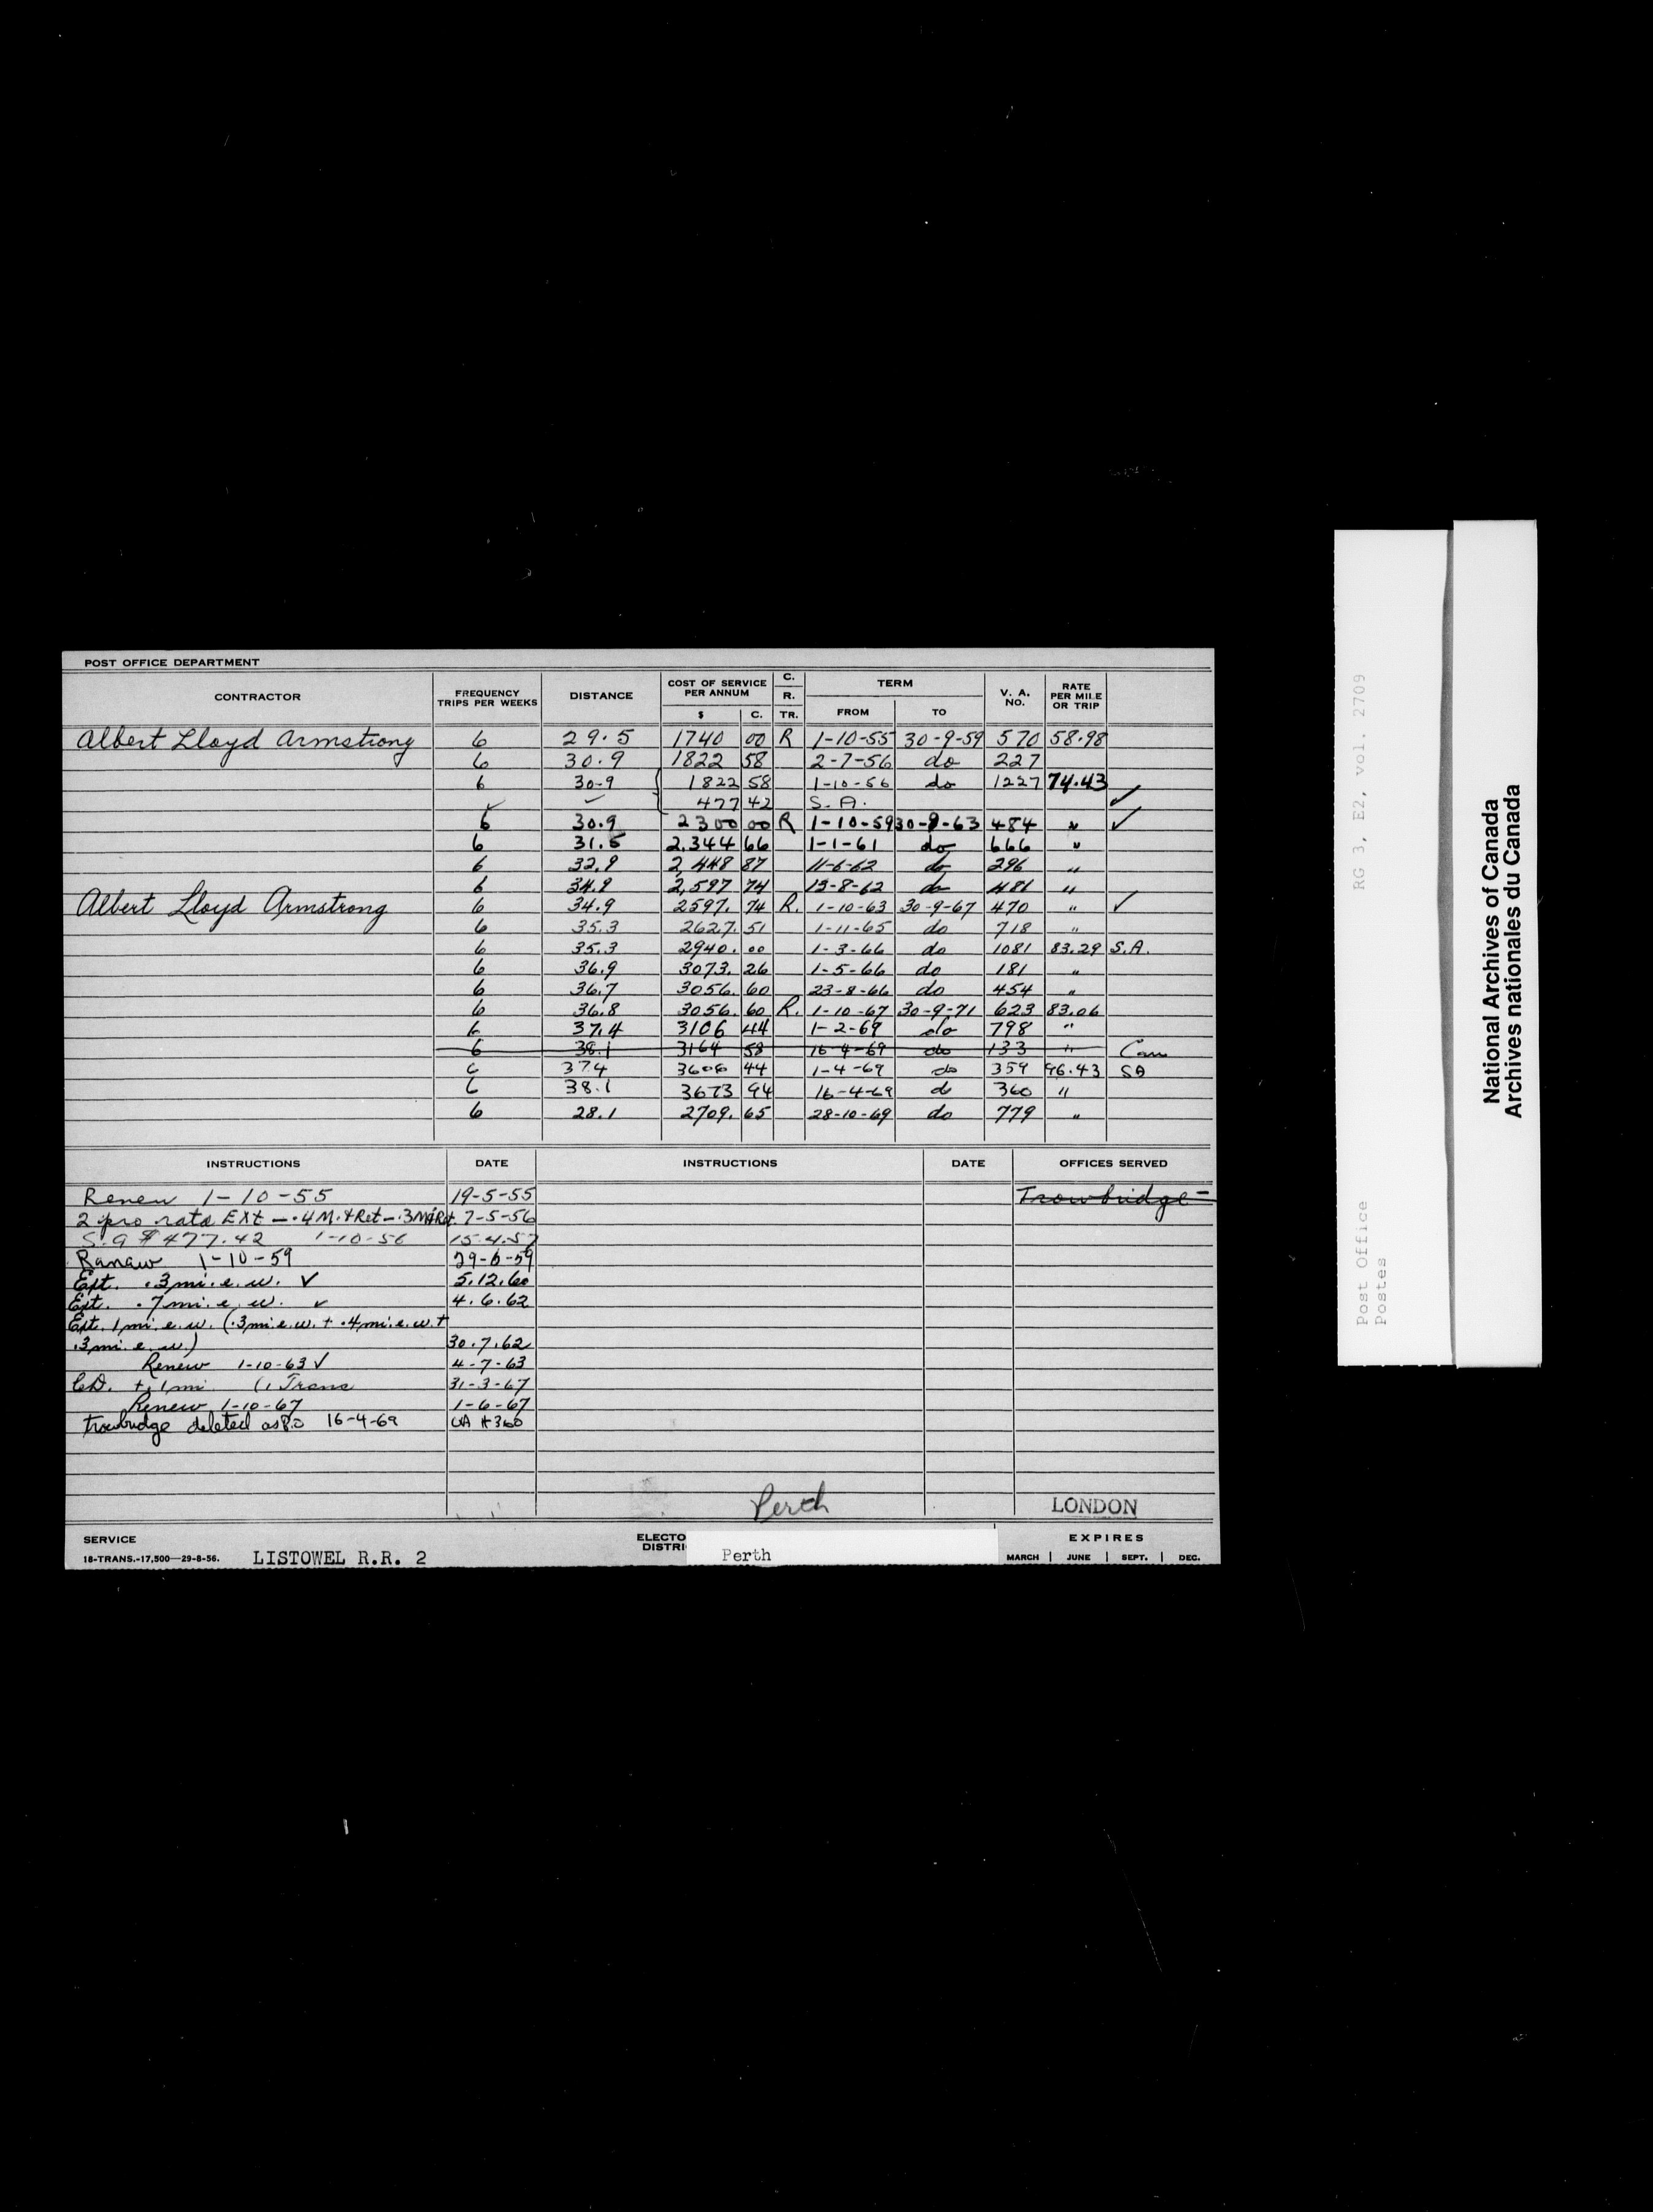 POST OFFICE DEPARTMENT
CONTRACTOR FREQUENCY TRIPS PER WEEKS DISTANCE COST OF SERVICE PER ANNUM $ C. C. R. TR. TERM FROM TO V. A. NO. RATE PER MILE OR TRIP
Albert Lloyd Armstrong 6 29.5 1740 00 R 1-10-55 30-9-59 570 58.98
6 30.9 1822 58 2-7-56 do 227
6 30.9 1822 58 1-10-56 do 1227 74.43
477 42 S.A. ✓
6 30.9 2300 00 R 1-10-59 30-9-63 484 " ✓
6 31.5 2,344 66 1-1-61 do 666 "
6 32.9 2,448 87 11-6-62 do 296 "
6 34.9 2,597 74 13-8-62 do 481 "
Albert Lloyd Armstrong 6 34.9 2597. 74 R. 1-10-63 30-9-67 470 " ✓
6 35.3 2627. 51 1-11-65 do 718 "
6 35.3 2940. 00 1-3-66 do 1081 83.29 S.A.
6 36.9 3073. 26 1-5-66 do 181 "
6 36.7 3056. 60 23-8-66 do 454 "
6 36.8 3056. 60 R. 1-10-67 30-9-71 623 83.06
6 37.4 3106 44 1-2-69 do 798 "
6 38.1 3164 58 16-4-69 do 133 " Can
6 37.4 3606 44 1-4-69 do 359 96.43 SA
6 38.1 3673 94 16-4-69 do 360 "
6 28.1 2709. 65 28-10-69 do 779 "
INSTRUCTIONS DATE INSTRUCTIONS DATE OFFICES SERVED
Renew 1-10-55 19-5-55 Trowbridge -
2 pro rata Ext - .4 M. & Ret - .3 M & Ret. 7-5-56
S.A $477.42 1-10-56 15.4.57
Renew 1-10-59 29-6-59
Ext. .3 mi. e. w. ✓ 5.12.60
Ext. .7 mi. e. w. ✓ 4.6.62
Ext. 1 mi. e. w. (.3 mi. e. w. + .4 mi. e. w. +
.3 mi. e. w.) 30.7.62
Renew 1-10-63 ✓ 4-7-63
CD. +.1 mi. 31-3-67
Renew 1-10-67 1-6-67
Trowbridge deleted as P.O 16-4-69 VA # 360
Perth
LONDON
SERVICE
18-TRANS.-17,500—29-8-56. LISTOWEL R.R. 2
ELECTO
DISTRI
Perth
EXPIRES
MARCH | JUNE | SEPT. | DEC.
RG 3, E2, vol. 2709
Post Office
Postes
National Archives of Canada
Archives nationales du Canada